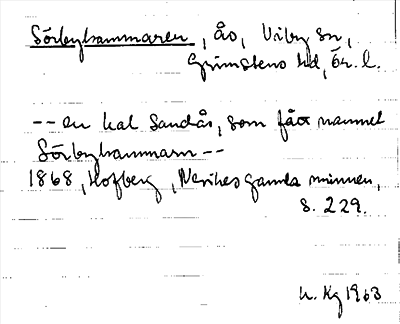 Sörbyhammaren, ås, Viby sn,
Grimstens hd, Ör. l.
-- en kal Sandås, som fått namnet
Sörbyhammarn --
1868, Hofberg, Nerikes gamla minnen,
s. 229.
h. Kg 1963